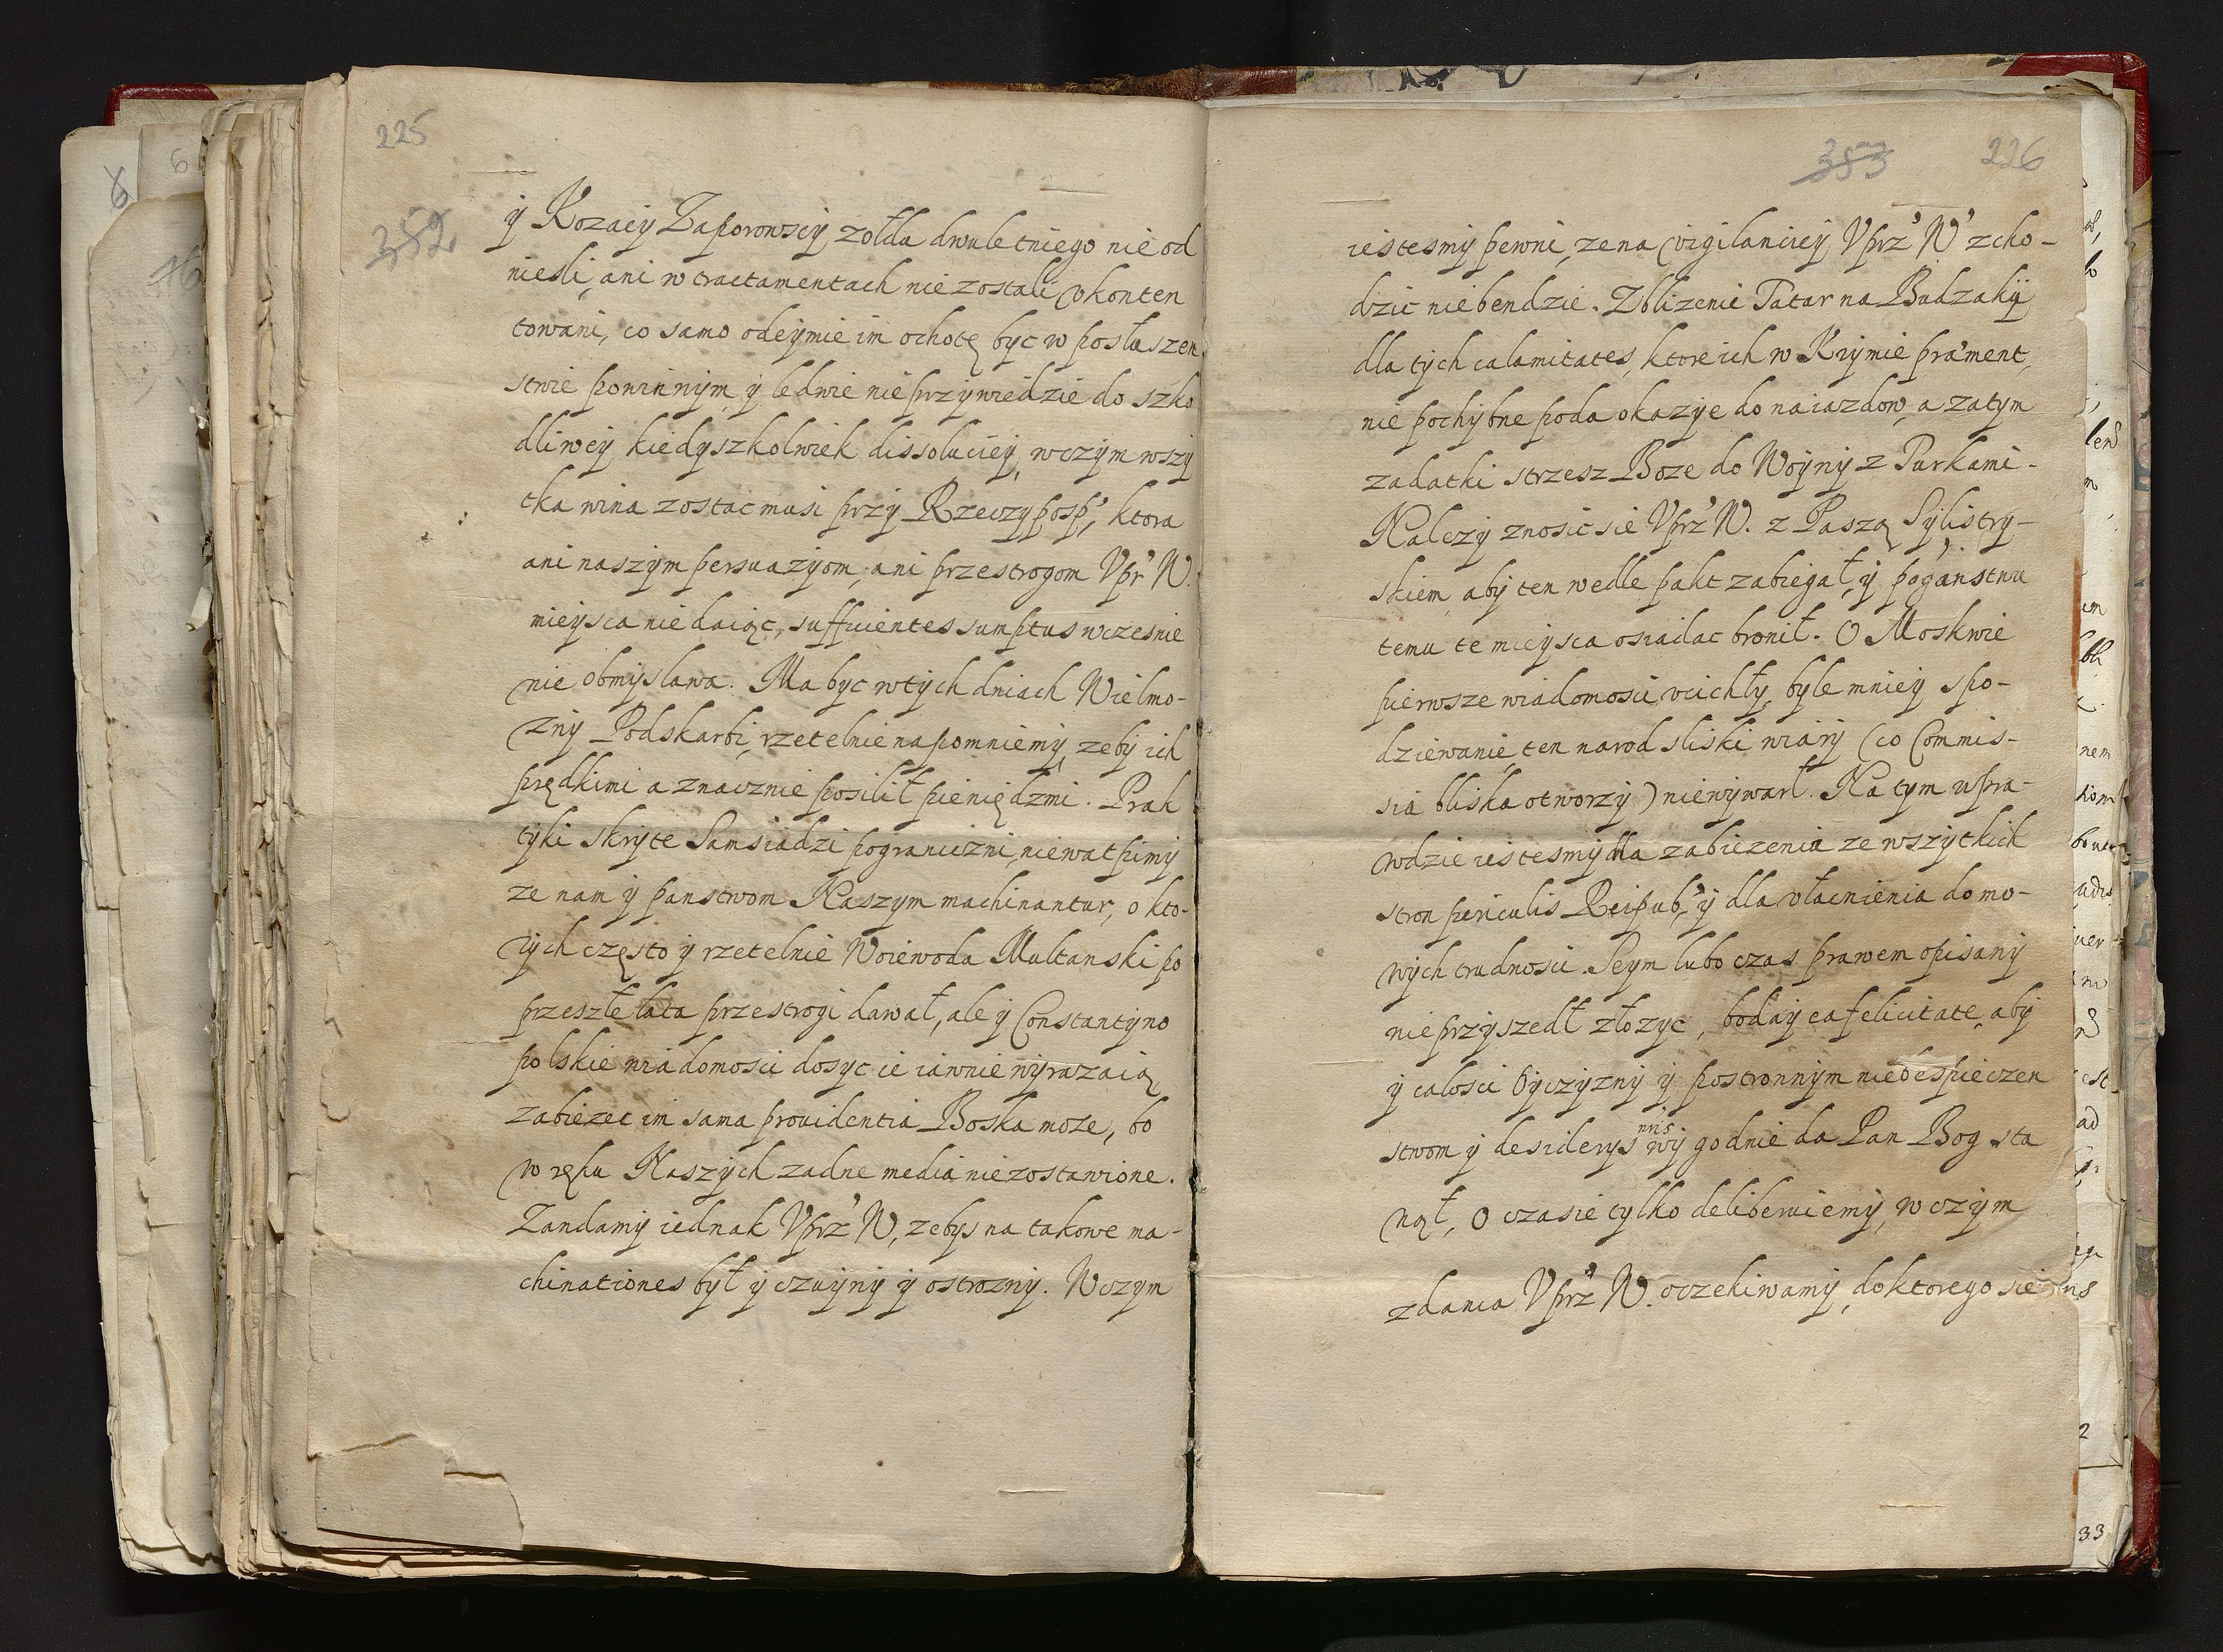 225
352
ÿ Kozacÿ Zaporowscÿ zołdu dwuletniego nie od
niesli, ani w tractamentach nie zostali vkonten
towani, co samo odeÿmie im ochotę byc w posłuszen
stwie powinnÿm, ÿ ledwie nie przÿwiedzie do szko
dliweÿ kiedÿszkolwiek dissolucieÿ, w czÿm wszÿ
tka wina zostac musi przÿ Rzeczÿposp', ktora
ani naszÿm persuazÿom, ani przestrogom Vpr' W.
mieÿsca nie daiąc, sufficientes sumptus wczesnie
nie obmÿslawa. Ma byc w tÿch dniach Wielmo-
znÿ Podskarbi, rzetelnie napomniemÿ, zebÿ ich
prędkimi a znacznie posilił pieniędzmi. Prak
tÿki skrÿte Samsiadzi pogranicżni, niewatpimÿ
ze nam ÿ panstwom Naszym machinantur, o kto-
rÿch często ÿ rzetelnie Woiewoda Multanski po
przeszłe lata przestrogi dawał, ale ÿ Constantÿno
polskie wiadomosci dosÿc ie iawnie wÿrazaią
zabiezec im sama prouidentia Boska moze, bo
w ręku Naszÿch zadne media nie zostawione.
Zandamÿ iednak Vprz' W, zebÿs na takowe ma-
chinationes był ÿ czuÿnÿ ÿ ostroznÿ. W czym
353 226
iestesmÿ pewni, ze na vigilancieÿ Vprz' W' zcho-
dzic nie bendzie. Zblizenie Tatar na Budzakÿ
dla tÿch calamitates, ktore ich w Krÿmie pra'ment,
nie pochÿbne poda okazÿe do naiazdow, a zatÿm
zadatki strzesz Boze do Woÿnÿ z Turkami.
Nalezÿ znosic sie Vprz' W. z Paszą Sÿlistrÿ-
skiem, abÿ ten wedle pakt zabiegał, ÿ poganstwu
temu te mieÿsca osiadac bronił. O Moskwie
pierwsze wiadomosci vcichłÿ, byle mnieÿ spo-
dziewanie, ten narod sliski wiarÿ (co Commis-
sia bliska otworzÿ) nie wÿwarł. Na tÿm wpra-
wdzie iestesmÿ dla zabiezenia ze wszÿtkich
stron periculis Reipub, ÿ dla vłacnienia domo-
wÿch trudnosci. Seym lubo czas prawem opisanÿ
nie przÿszedł złozÿc, bodaÿ ea felicitate, abÿ
ÿ całosci Oÿczÿznÿ ÿ postronnÿm niebespieczen
stwom ÿ desiderys nris wÿgodnie da Pan Bog sta
nął, O czasie tylko deliberuiemÿ, w czÿm
zdania Vprz' W. oczekiwamÿ, do ktorego sie